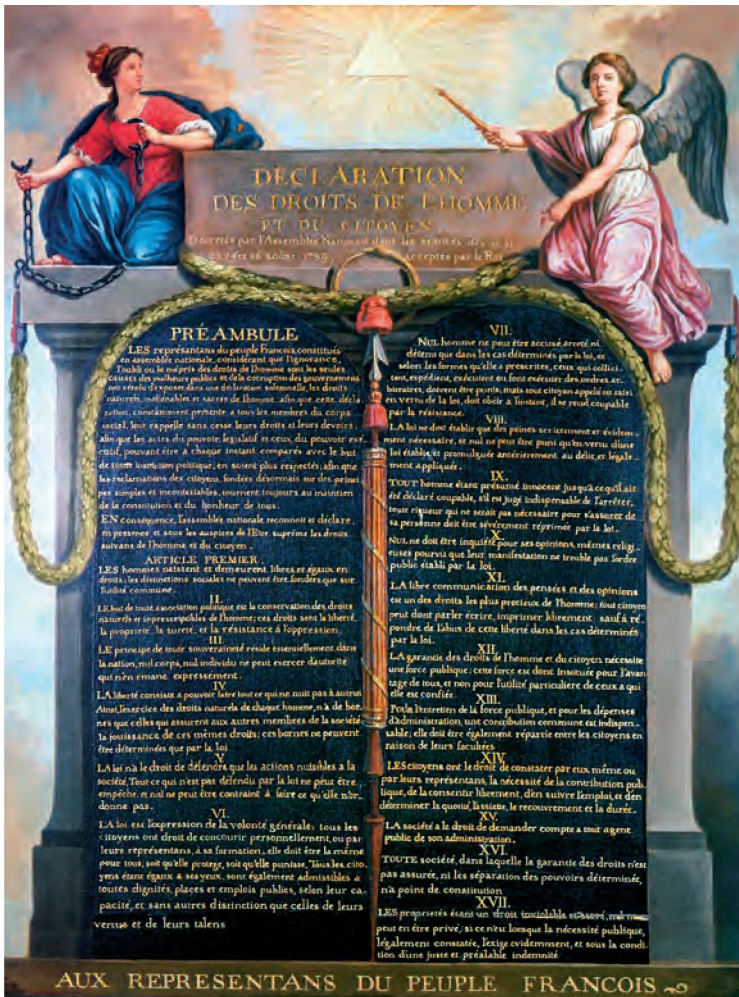 DÉCLARATION
DES DROITS DE L'HOMME
ET DU CITOYEN,
Décrétés par l'Assemblée Nationale dans les séances des 20, 21
23, 24 et 26 août 1789, acceptés par le Roi
PRÉAMBULE
LES représentans du peuple François, constitués
en assemblée nationale, considérant que l'ignorance,
l'oubli ou le mépris des droits de l'homme sont les seules
causes des malheurs publics et de la corruption des gouvernemens
ont résolu d'exposer dans une déclaration solemnelle, les droits
naturels, inaliénables et sacrés de l'homme: afin que cette décla
ration, constamment présente a tous les membres du corps
social, leur rappelle sans cesse leurs droits et leurs devoirs;
afin que les actes du pouvoir législatif et ceux du pouvoir exé
cutif, pouvant être a chaque instant comparés avec le but
de toute institution politique, en soient plus respectés; afin que
les réclamations des citoyens, fondées désormais sur des princi
pes simples et incontestables, tournent toujours au maintien
de la constitution et du bonheur de tous.
EN conséquence, l'assemblée nationale reconnoit et déclare,
en présence et sous les auspices de l'Etre suprême les droits
suivans de l'homme et du citoyen.
ARTICLE PREMIER.
LES hommes naissent et demeurent libres et égaux en
droits; les distinctions sociales ne peuvent être fondées que sur
l'utilité commune.
II.
LE but de toute association politique est la conservation des droits
naturels et imprescriptibles de l'homme; ces droits sont la liberté,
la propriété, la sureté, et la résistance à l'oppression.
III.
LE principe de toute souveraineté réside essentiellement dans
la nation, nul corps, nul individu ne peut exercer d'autorité
qui n'en émane expressement.
IV.
LA liberté consiste a pouvoir faire tout ce qui ne nuit pas à autrui
Ainsi, l'exercice des droits naturels de chaque homme, n'a de bor-
nes que celles qui assurent aux autres membres de la société
la jouissance de ces mêmes droits; ces bornes ne peuvent
être déterminées que par la loi
V.
LA loi n'a le droit de défendre que les actions nuisibles a la
société. Tout ce qui n'est pas défendu par la loi ne peut être
empêché, et nul ne peut être contraint à faire ce qu'elle n'or-
donne pas.
VI.
LA loi est l'expression de la volonté générale; tous les
citoyens ont droit de concourir personnellement, ou par
leurs représentans, à sa formation; elle doit être la même
pour tous, soit qu'elle protege, soit qu'elle punisse. Tous les cito-
yens étant égaux à ses yeux, sont également admissibles à
toutes dignités, places et emplois publics, selon leur ca-
pacité, et sans autres distinction que celles de leurs
vertus et de leurs talens
VII.
NUL homme ne peut être accusé, arreté ni
détenu que dans les cas déterminés par la loi, et
selon les formes qu'elle a prescrites, ceux qui sollici-
tent, expédient, exécutent ou font exécuter des ordres ar-
bitraires, doivent être punis; mais tout citoyen appelé ou saisi
en vertu de la loi, doit obéir a l'instant, il se rend coupable
par la résistance.
VIII.
LA loi ne doit établir que des peines strictement et évidem-
ment nécessaire, et nul ne peut être puni qu'en vertu d'une
loi établie et promulguée antérieurement au délit, et légale-
ment appliquée.
IX.
TOUT homme étant présumé innocent jusqu'à ce qu'il ait
été déclaré coupable, s'il est jugé indispensable de l'arrêter,
toute rigueur qui ne serait pas nécessaire pour s'assurer de
sa personne doit être sévèrement réprimée par la loi.
X.
NUL ne doit être inquiété pour ses opinions, mêmes religi-
euses pourvu que leur manifestation ne trouble pas l'ordre
public établi par la loi.
XI.
LA libre communication des pensées et des opinions
est un des droits les plus precieux de l'homme; tout citoyen
peut donc parler écrire, imprimer librement; sauf à ré-
pondre de l'abus de cette liberté dans les cas déterminés
par la loi.
XII.
LA garantie des droits de l'homme et du citoyen nécessite
une force publique; cette force est donc instituée pour l'avan
tage de tous, et non pour l'utilité particulière de ceux a qui
elle est confiée.
XIII.
Pour l'entretien de la force publique, et pour les dépenses
d'administration, une contribution commune est indispen-
sable; elle doit être également répartie entre les citoyens en
raison de leurs facultées
XIV.
LES citoyens ont le droit de constater par eux même ou
par leurs représentans, la nécessité de la contribution pub-
lique, de la consentir librement, d'en suivre l'emploi, et d'en
déterminer la quotité, l'assiette, le recouvrement et la durée.
XV.
LA société a le droit de demander compte a tout agent
public de son administration.
XVI.
TOUTE société, dans laquelle la garantie des droits n'est
pas assurée, ni les séparation des pouvoirs déterminée,
n'a point de constitution
XVII.
LES proprietés étant un droit inviolable et sacré, nul ne
peut en être privé, si ce n'est lorsque la nécessité publique,
légalement constatée, l'exige evidemment, et sous la condi-
tion d'une juste et préalable indemnité
AUX REPRESENTANS DU PEUPLE FRANCOIS